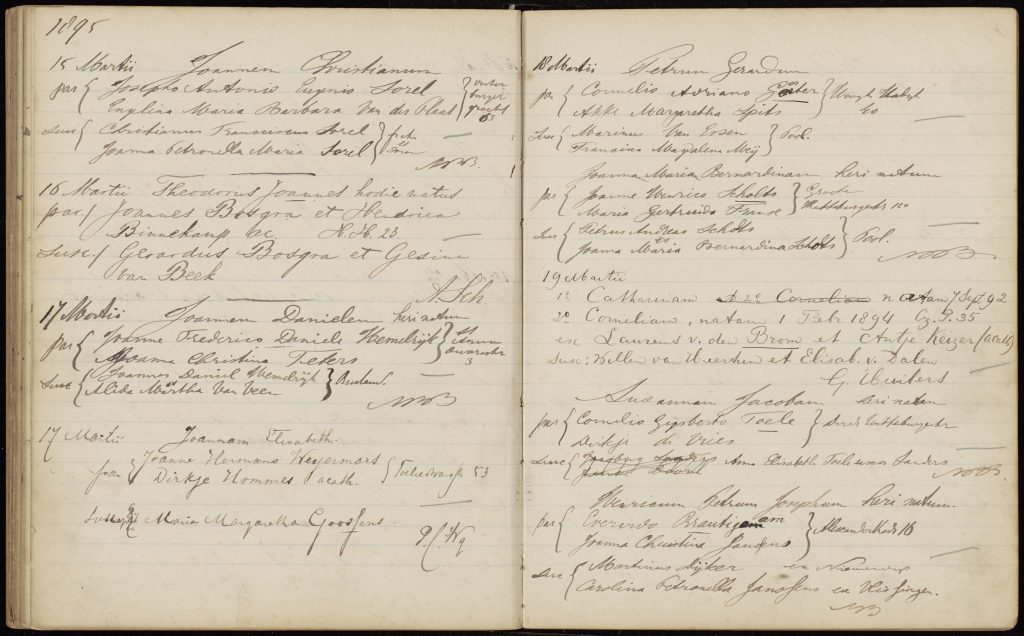 1895
15 Martii Joannem Christianum
par { Josepho Antonio Eugenio Sorel
Engelina Maria Barbara Van der Plaat
63
Susc { Christianus Franciscus Sorel
Joanna Petronella Maria Sorel
16 Martii Theodorus Joannes hodie natus
par. / Joannes Bosgra et Hendrica
Binnekamp ac. H. H. 23.
Susc. / Gerardus Bosgra et Gesina
van Beek
A. Sch.
17 Martii Joannem Danielem heri natum
par { Joanne Frederico Daniele Hemelrijk
3
Joanna Christina Tekers
Susc { Joannes Daniel Hemelrijk
Alida Martha Van Veen
17 Martii Joannam Elisabeth.
Joanne Hermano Heyermars
Dirkje Hommes acath. 53
Maria Margaretha Goossens
18 Martii Petrum Gerardum
par { Cornelio Adriano
Akke Margaretha Spits
Susc { Marinus Van Essen
Francina Magdalena Meij
Joanna Maria Bernardinam heri natum
par { Joanne Henrico Scholts } Groote
Maria Gertruida Franse
Susc { Petrus Andreas Scholts
Joanna Maria Bernardina Scholts
19 Martii
1º Catharinam A 2º Cornelium natam 7 Sept. 92
2º Cornelium, natam 1 Febr 1894 Oz. P. 35
ex Laurens v. den Brom et Antje Keizer (acath)
Susc: Willem van Weertum et Elisab. v. Dalen
G. Huibers
Susannam Jacobam heri natam
par { Cornelio Gijsberto Toele
Dirkje de Vries
Susc { Anna Elisabeth Sanders
Henricum Petrum Josephum heri natum.
par { Everardo Brautigam
Joanna Christina Janssens } 16
Susc { Martinus Dijker
Carolina Petronella Janssens